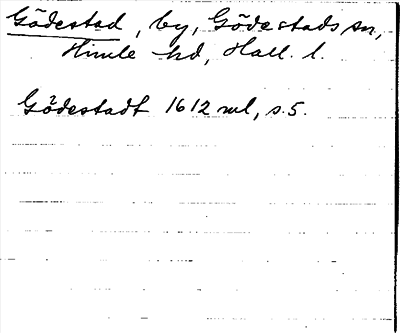 Gödestad, by, Gödestads sn,
Himle hd, Hall. l.
Gödestadt 1612 ml, s. 5.